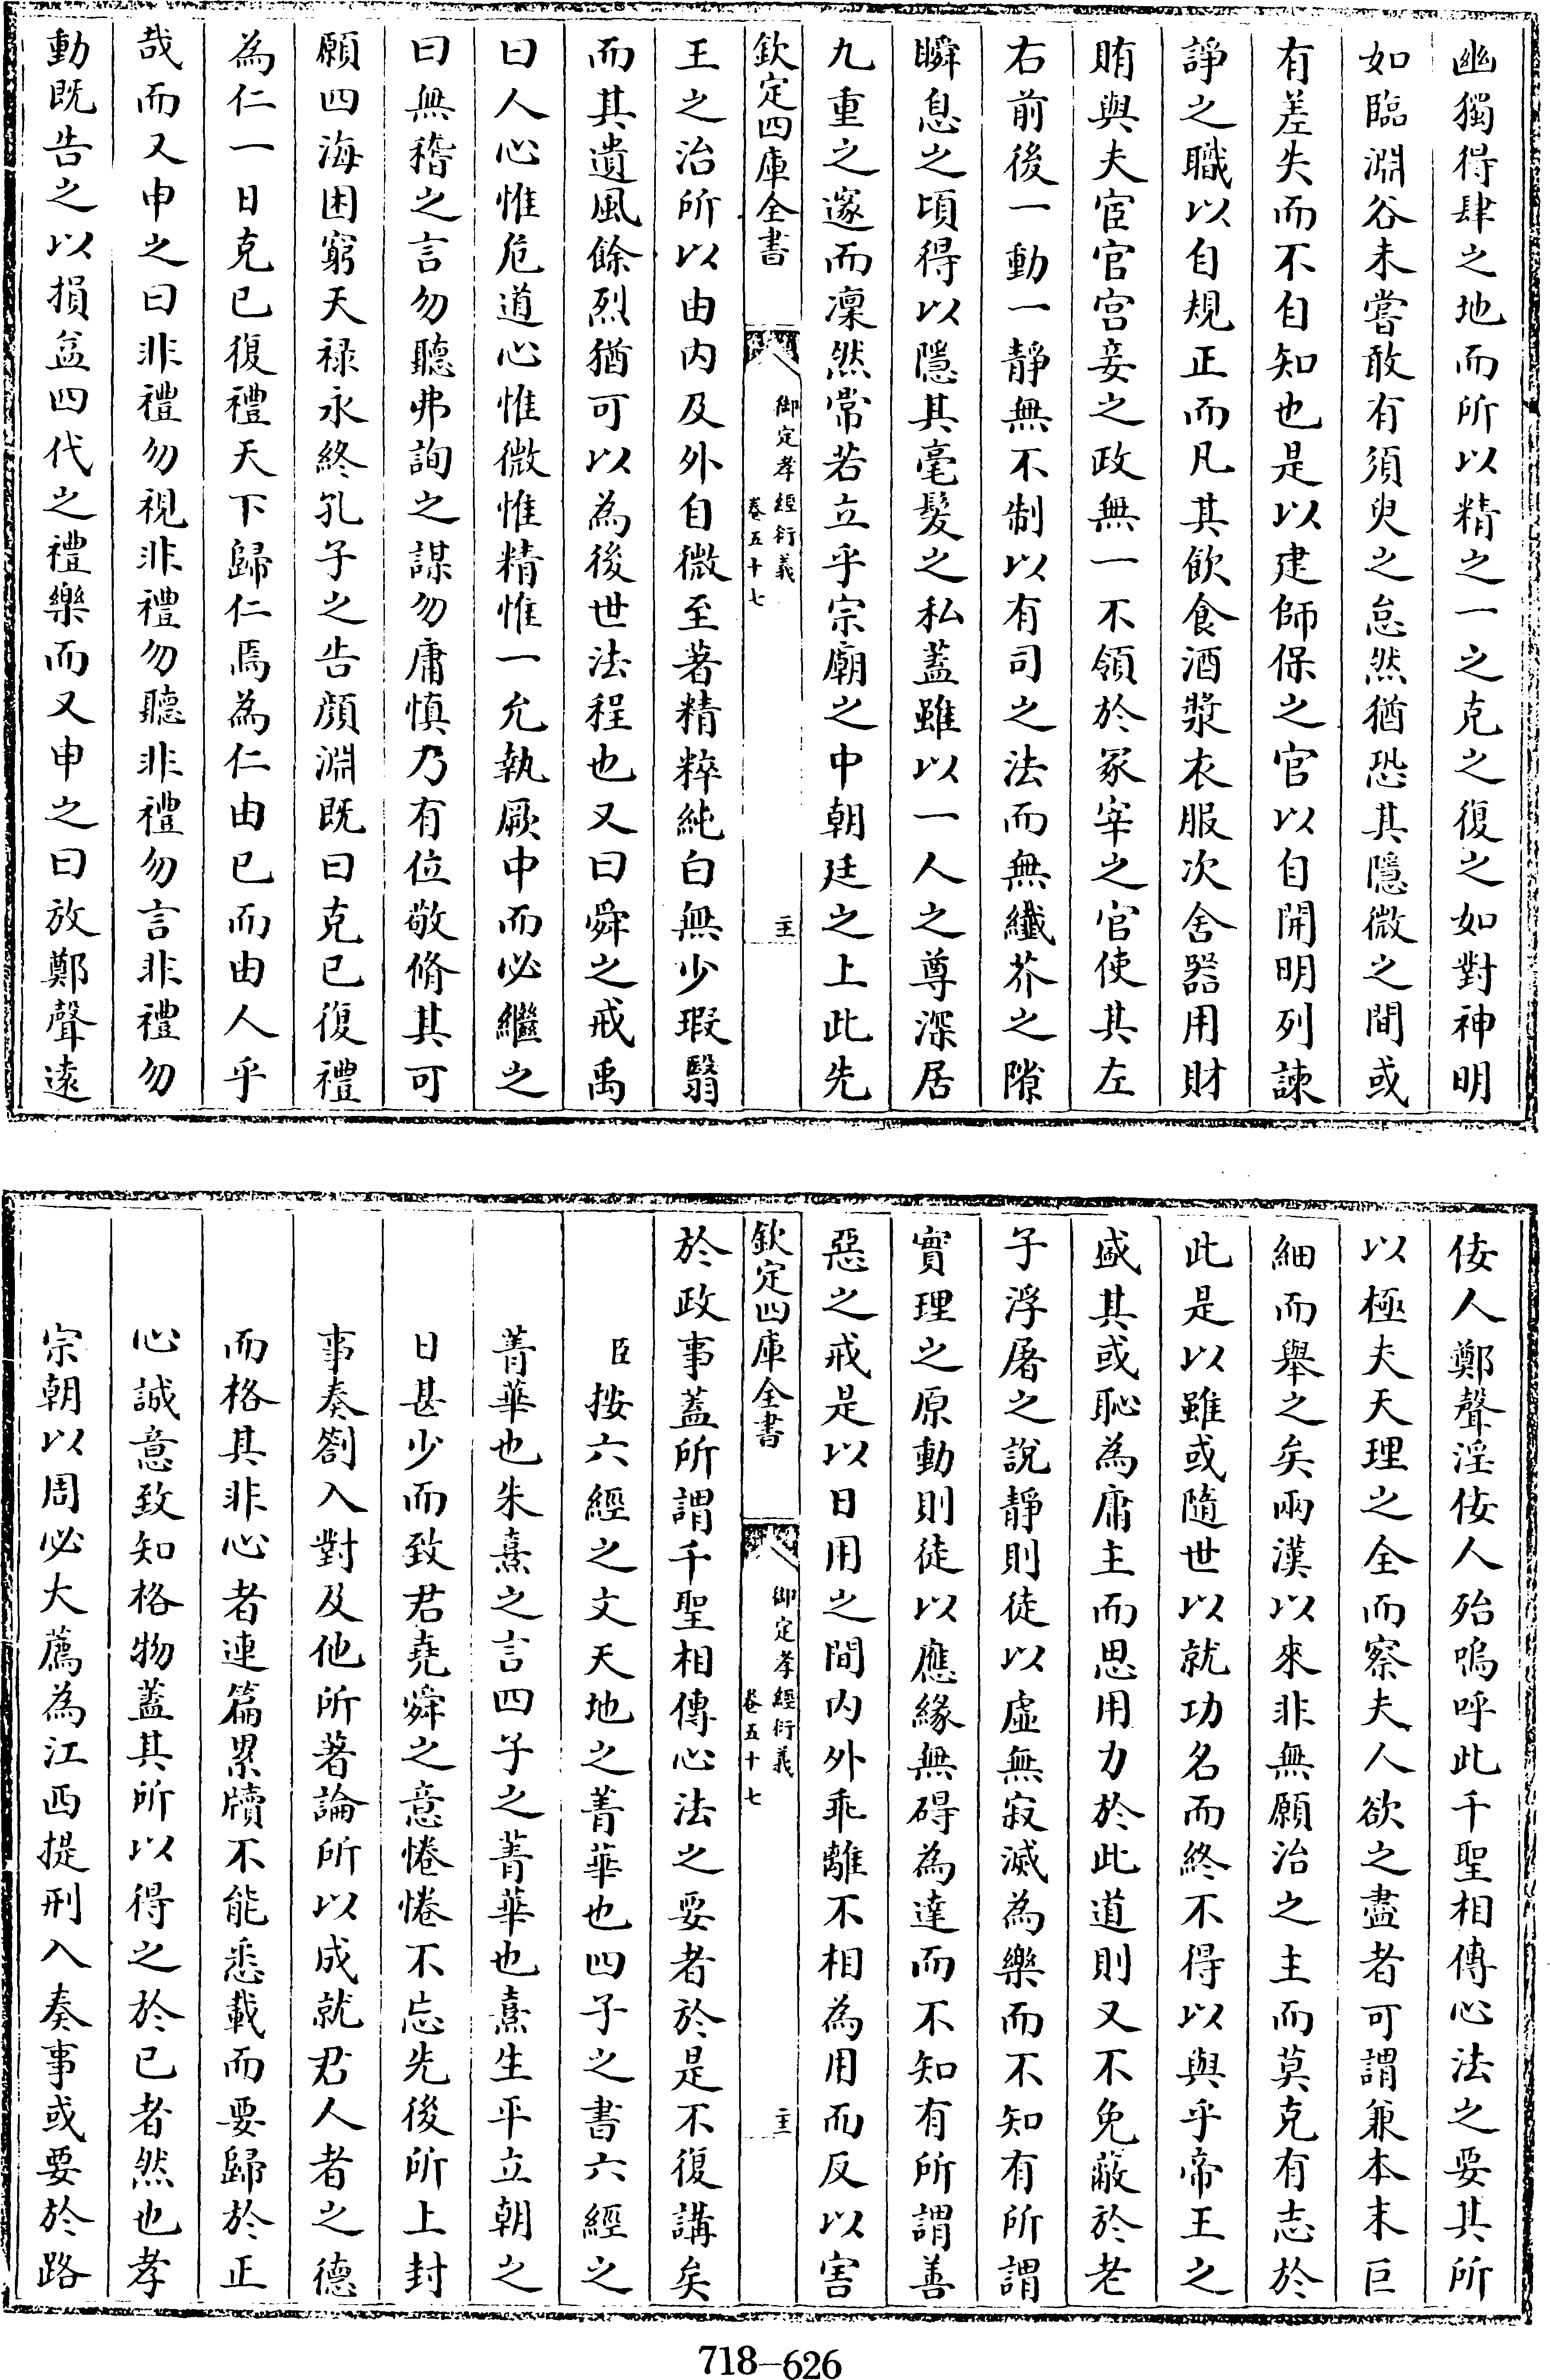 幽獨得肆之地而所以精之一之克之復之如對神明
如臨淵谷未嘗敢有須臾之怠然猶恐其隱微之間或
有差失而不自知也是以建師保之官以自開明列諫
諍之職以自規正而凡其飲食酒漿衣服次舍器用財
賄與夫宦官宫妾之政無一不領於冢宰之官使其左
右前後一動一靜無不制以有司之法而無纖芥之隙
瞬息之頃得以隱其毫髮之私蓋雖以一人之尊深居
九重之邃而凜然常若立乎宗廟之中朝廷之上此先
欽定四庫全書
御定孝經衍義
卷五十七
王之治所以由内及外自微至著精粹純白無少瑕翳
而其遺風餘烈猶可以為後世法程也又曰舜之戒禹
曰人心惟危道心惟微惟精惟一允執厥中而必繼之
曰無稽之言勿聽弗詢之謀勿庸慎乃有位敬脩其可
願四海困窮天禄永終孔子之告顏淵既曰克已復禮
為仁一日克已復禮天下歸仁焉為仁由已而由人乎
哉而又申之曰非禮勿視非禮勿聽非禮勿言非禮勿
動既告之以損益四代之禮樂而又申之曰放鄭聲遠
佞人鄭聲淫佞人殆嗚呼此千聖相傳心法之要其所
以極夫天理之全而察夫人欲之盡者可謂兼本末巨
細而舉之矣兩漢以來非無願治之主而莫克有志於
此是以雖或隨世以就功名而終不得以與乎帝王之
盛其或恥為庸主而思用力於此道則又不免蔽於老
子浮屠之說靜則徒以虛無寂滅為樂而不知有所謂
實理之原動則徒以應緣無碍為達而不知有所謂善
惡之戒是以日用之間内外乖離不相為用而反以害
欽定四庫全書
御定孝經衍義
卷五十七
於政事蓋所謂千聖相傳心法之要者於是不復講矣
臣按六經之文天地之菁華也四子之書六經之
菁華也朱熹之言四子之菁華也熹生平立朝之
日甚少而致君堯舜之意惓惓不忘先後所上封
事奏劄入對及他所著論所以成就君人者之德
而格其非心者連篇累牘不能悉載而要歸於正
心誠意致知格物蓋其所以得之於已者然也孝
宗朝以周必大薦為江西提刑入奏事或要於路
718-626